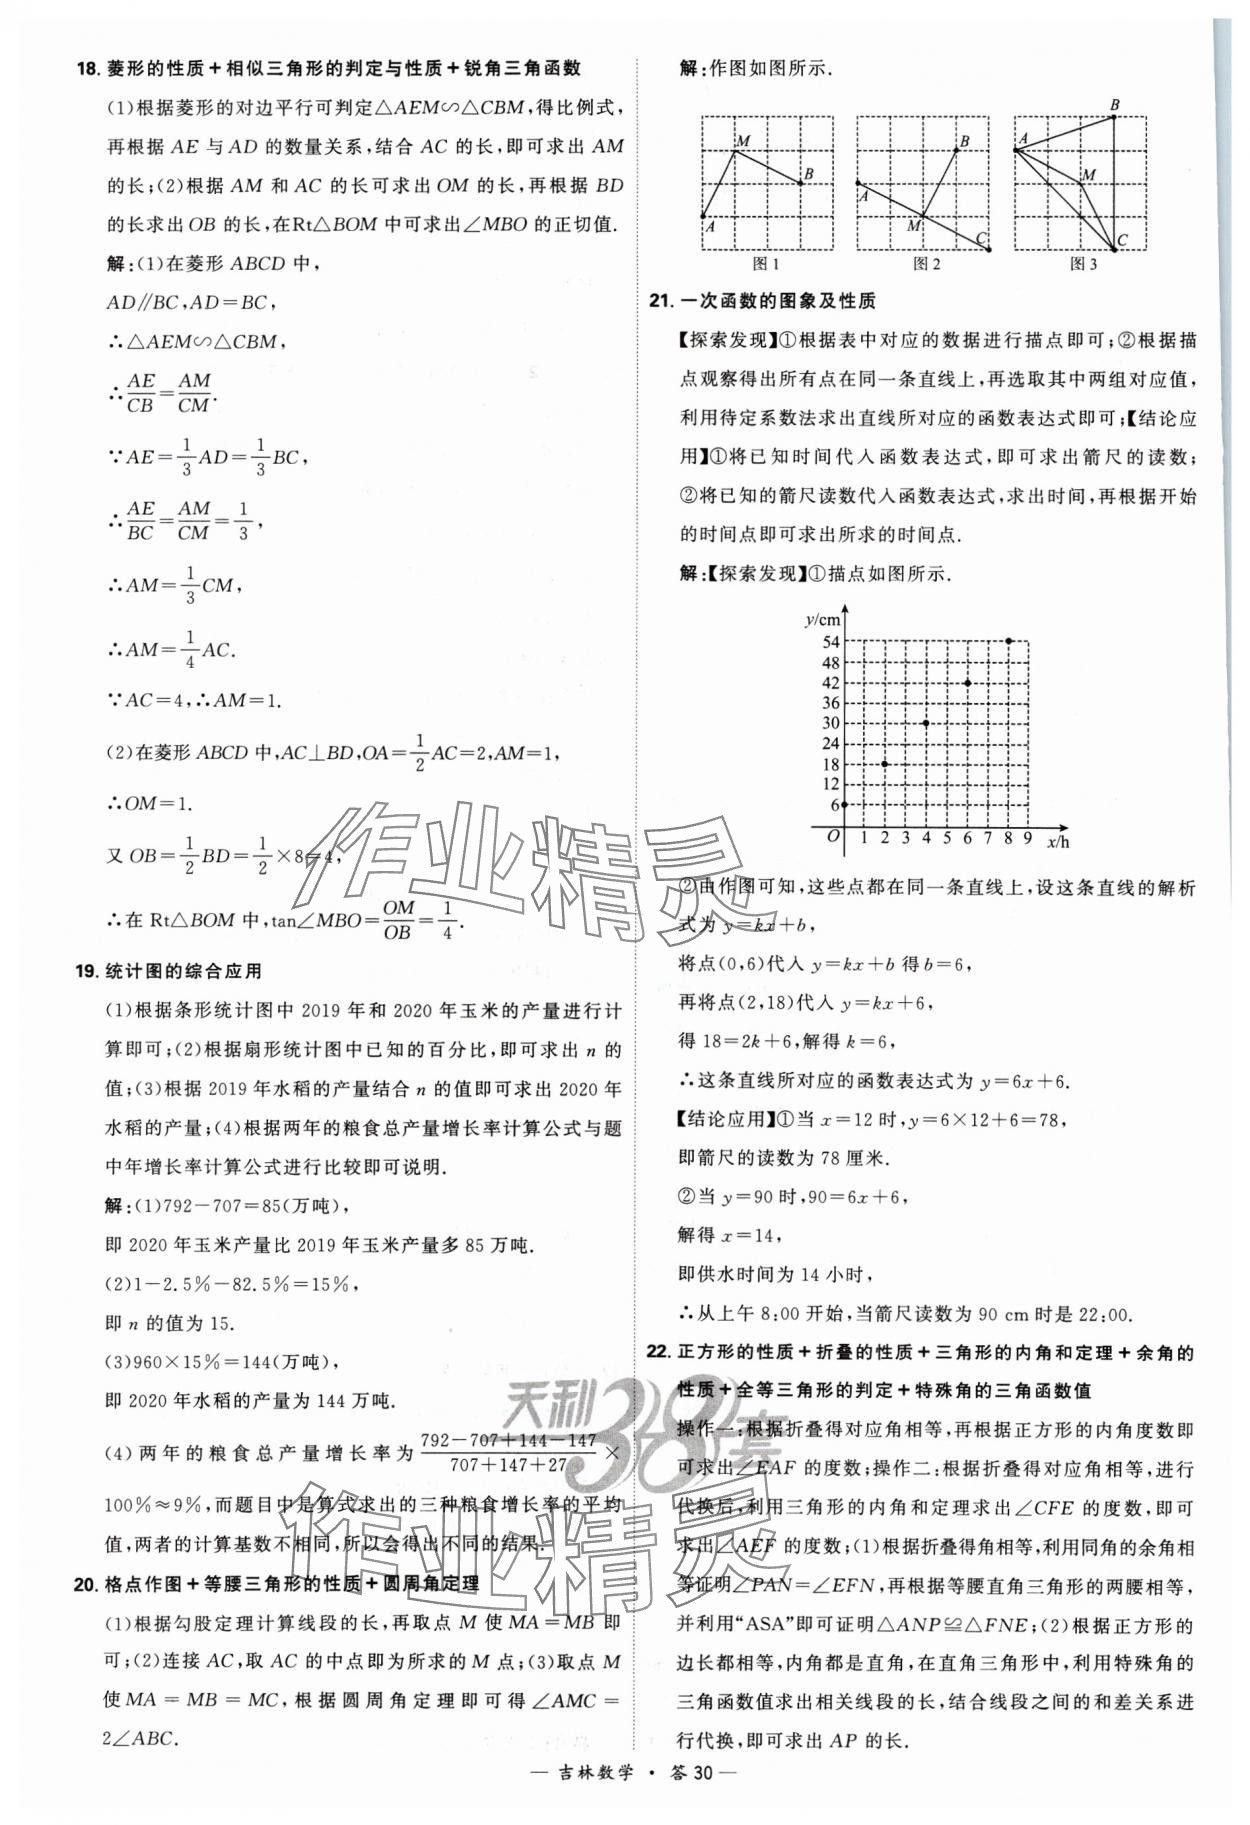 18. 菱形的性质+相似三角形的判定与性质+锐角三角函数
(1)根据菱形的对边平行可判定△AEM∽△CBM,得比例式,
再根据 AE 与 AD 的数量关系,结合 AC 的长,即可求出 AM
的长;(2)根据 AM 和 AC 的长可求出 OM 的长,再根据 BD
的长求出 OB 的长,在Rt△BOM 中可求出∠MBO 的正切值.
解:(1)在菱形 ABCD 中,
AD∥BC,AD=BC,
∴△AEM∽△CBM,
∴AE/CB=AM/CM.
∵AE=1/3AD=1/3BC,
∴AE/BC=AM/CM=1/3,
∴AM=1/3CM,
∴AM=1/4AC.
∵AC=4,∴AM=1.
(2)在菱形 ABCD 中,AC⊥BD,OA=1/2AC=2,AM=1,
∴OM=1.
又 OB=1/2BD=1/2×8=4,
∴在 Rt△BOM 中,tan∠MBO=OM/OB=1/4.
19. 统计图的综合应用
(1)根据条形统计图中 2019 年和 2020 年玉米的产量进行计
算即可;(2)根据扇形统计图中已知的百分比,即可求出 n 的
值;(3)根据 2019 年水稻的产量结合 n 的值即可求出 2020 年
水稻的产量;(4)根据两年的粮食总产量增长率计算公式与题
中年增长率计算公式进行比较即可说明.
解:(1)792-707=85(万吨),
即 2020 年玉米产量比 2019 年玉米产量多 85 万吨.
(2)1-2.5%-82.5%=15%,
即 n 的值为 15.
(3)960×15%=144(万吨),
即 2020 年水稻的产量为 144 万吨.
(4)两年的粮食总产量增长率为(792-707+144-147)/(707+147+27)×
100%≈9%,而题目中是算式求出的三种粮食增长率的平均
值,两者的计算基数不相同,所以会得出不同的结果.
20. 格点作图+等腰三角形的性质+圆周角定理
(1)根据勾股定理计算线段的长,再取点 M 使 MA=MB 即
可;(2)连接 AC,取 AC 的中点即为所求的 M 点;(3)取点 M
使 MA=MB=MC,根据圆周角定理即可得∠AMC=
2∠ABC.
解:作图如图所示.
M
B
A
图1
B
A
M
C
图2
B
A
M
C
图3
21. 一次函数的图象及性质
【探索发现】①根据表中对应的数据进行描点即可;②根据描
点观察得出所有点在同一条直线上,再选取其中两组对应值,
利用待定系数法求出直线所对应的函数表达式即可;【结论应
用】①将已知时间代入函数表达式,即可求出箭尺的读数;
②将已知的箭尺读数代入函数表达式,求出时间,再根据开始
的时间点即可求出所求的时间点.
解:【探索发现】①描点如图所示.
y/cm
54
48
42
36
30
24
18
12
6
O 1 2 3 4 5 6 7 8 9 x/h
②由作图可知,这些点都在同一条直线上,设这条直线的解析
式为 y=kx+b,
将点(0,6)代入 y=kx+b 得 b=6,
再将点(2,18)代入 y=kx+6,
得 18=2k+6,解得 k=6,
∴这条直线所对应的函数表达式为 y=6x+6.
【结论应用】①当 x=12 时,y=6×12+6=78,
即箭尺的读数为 78 厘米.
②当 y=90 时,90=6x+6,
解得 x=14,
即供水时间为 14 小时,
∴从上午 8:00 开始,当箭尺读数为 90 cm 时是 22:00.
22. 正方形的性质+折叠的性质+三角形的内角和定理+余角的
性质+全等三角形的判定+特殊角的三角函数值
操作一:根据折叠得对应角相等,再根据正方形的内角度数即
可求出∠EAF 的度数;操作二:根据折叠得对应角相等,进行
代换后,利用三角形的内角和定理求出∠CFE 的度数,即可
求出∠AEF 的度数;(1)根据折叠得角相等,利用同角的余角相
等证明∠PAN=∠EFN,再根据等腰直角三角形的两腰相等,
并利用“ASA”即可证明△ANP≌△FNE;(2)根据正方形的
边长都相等,内角都是直角,在直角三角形中,利用特殊角的
三角函数值求出相关线段的长,结合线段之间的和差关系进
行代换,即可求出 AP 的长.
作业精灵
天利38套
作业精灵
— 吉林数学 · 答 30 —